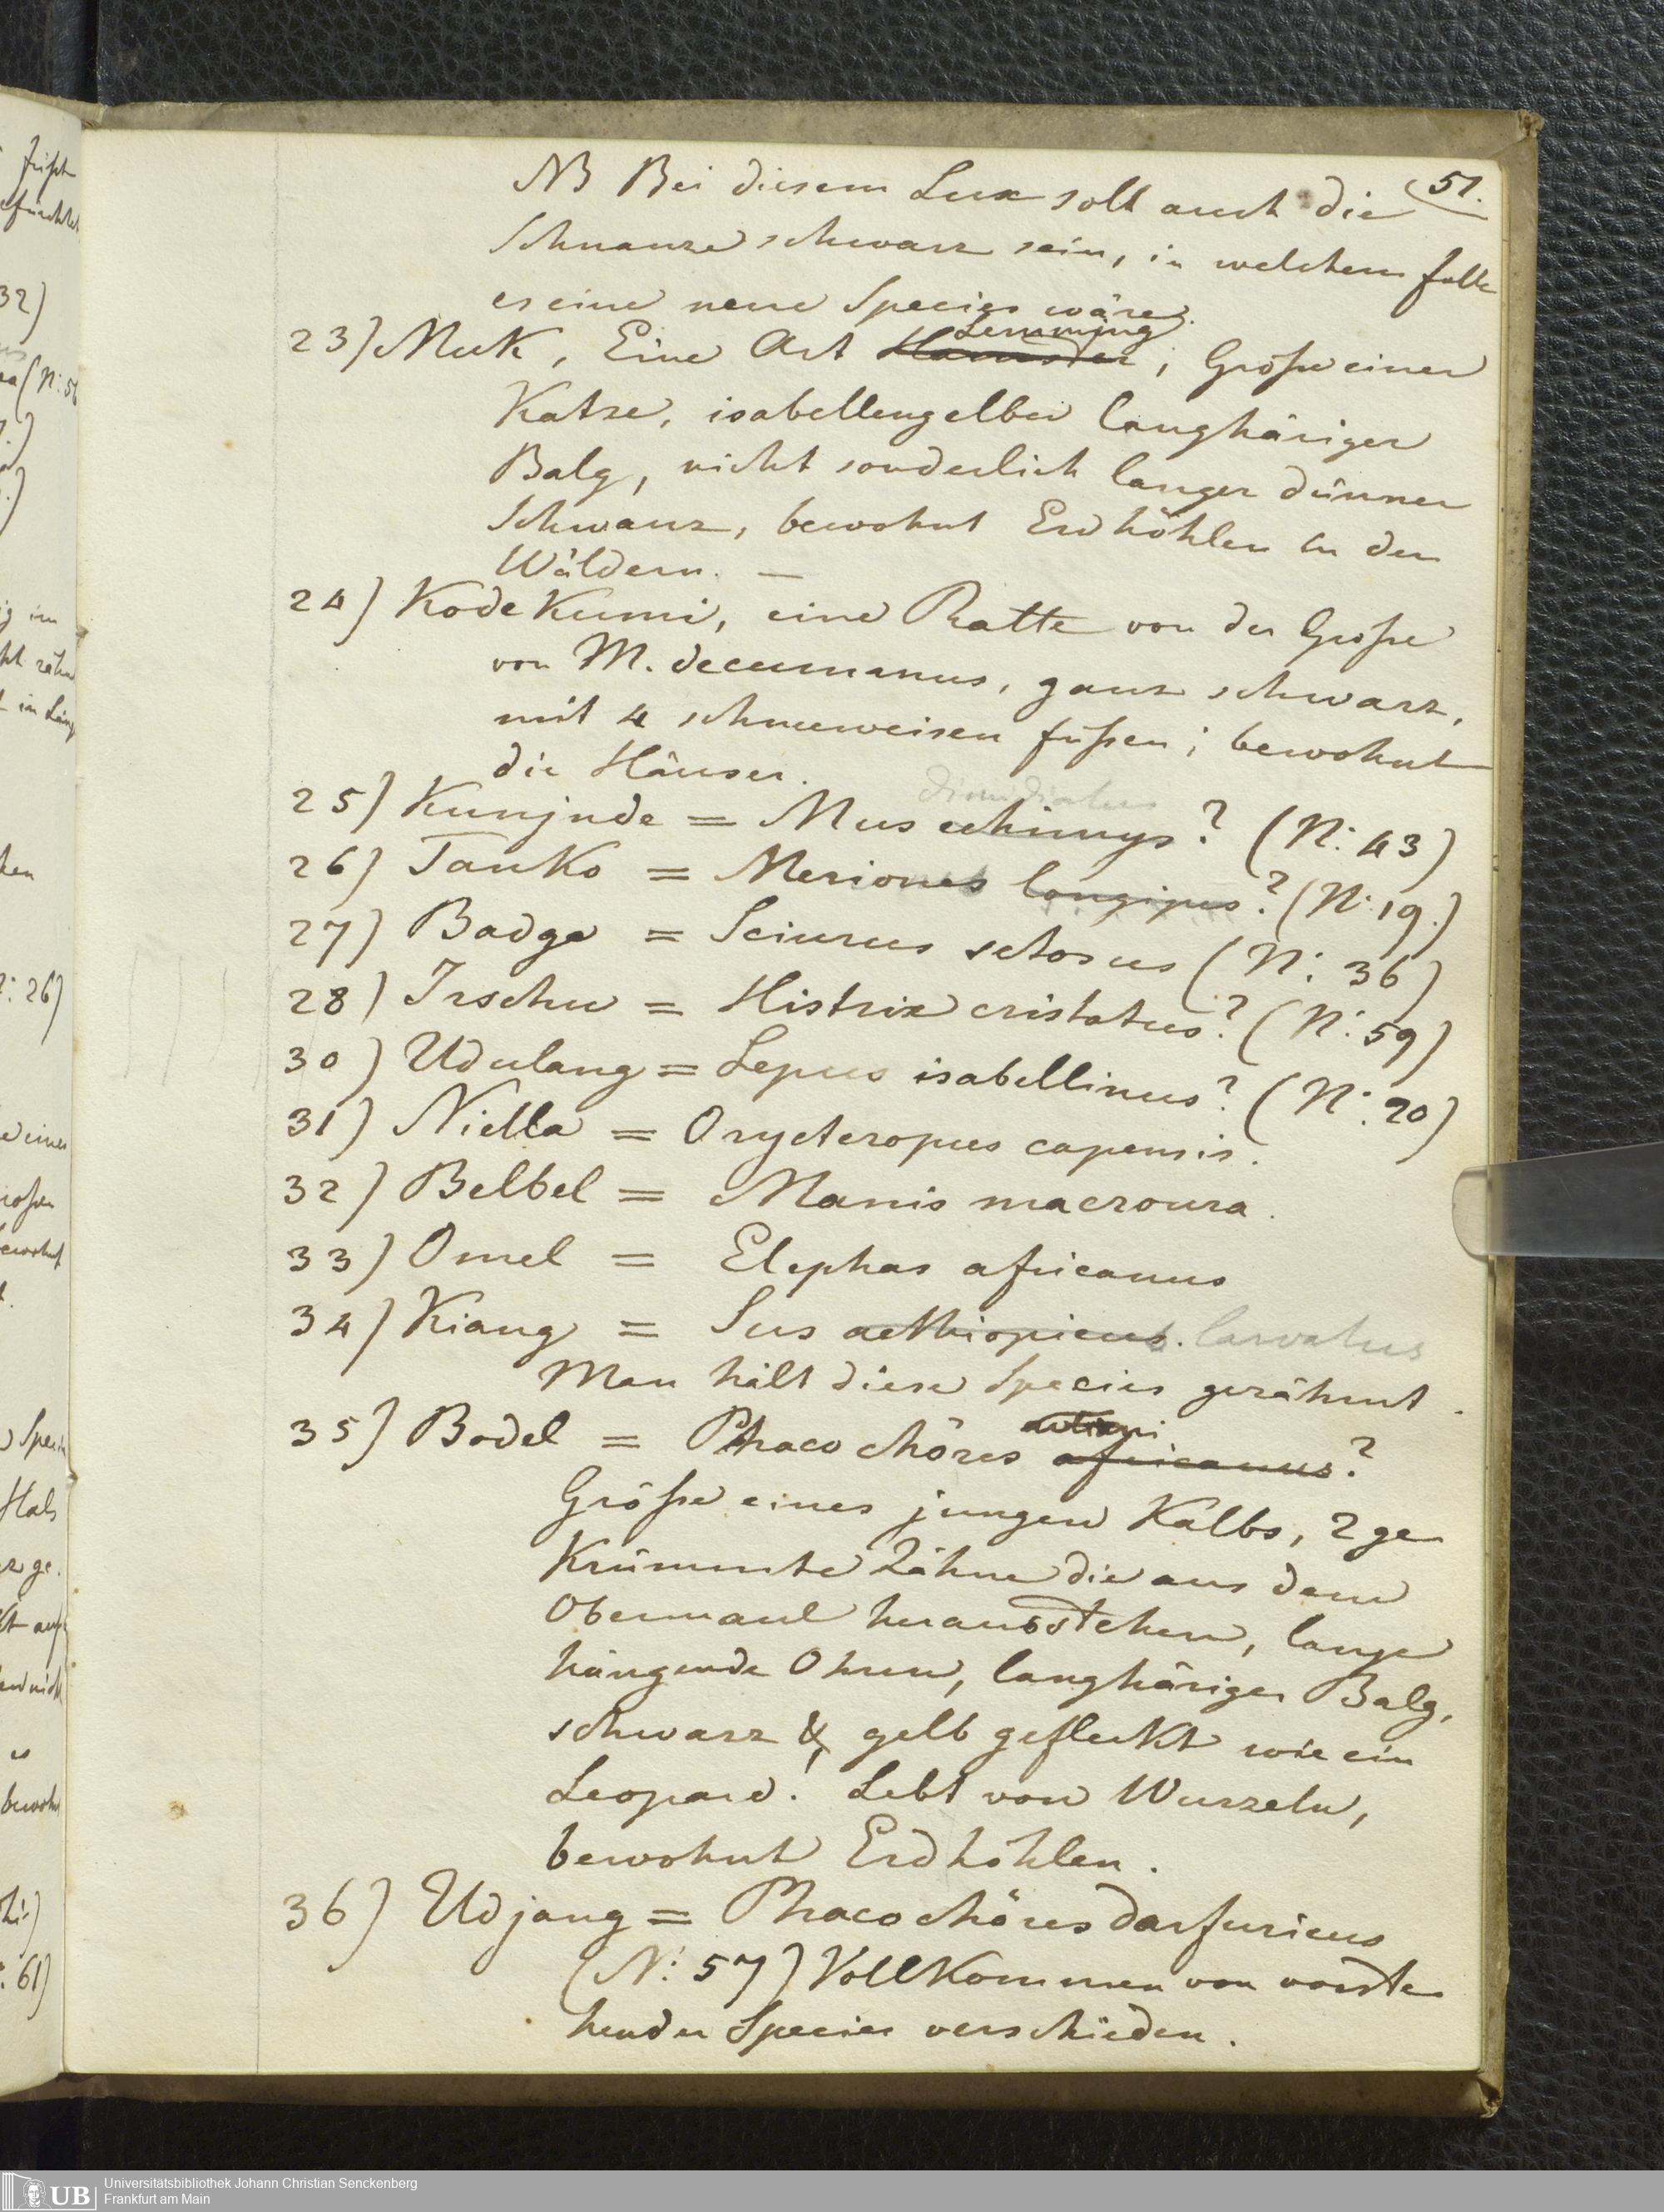 51.
NB Bei diesem Lux soll auch die
Schnauze schwarz sein, in welchem falle
es eine neue Species wäre.
Lemming
23) Muk, Eine Art Hamster, Größe einer
Katze, isabellengelber langhäriger
Balg, nicht sonderlich langer dünner
Schwanz, bewohnt Erdhöhlen in den
Wäldern. —
24) Kode Kumi, eine Ratte von der Große
von M. decumanus, ganz schwarz,
mit 4 schneeweisen fußen; bewohnt
die Häuser.
dimidiatus
25) Kunjnde = Mus echimys? (N: 43)
26) Tanko = Meriones longipes? (N: 19.)
27) Badga = Sciurus setosus (N: 36)
28) Irschu = Histrix cristatus? (N: 59)
30) Udulang = Lepus isabellinus? (N: 20)
31) Niella = Orycteropus capensis.
32) Belbel = Manis macroura.
33) Omel = Elephas africanus
34) Kiang = Sus aethiopicus. larvatus
Man hält diese Species gezähmt.
35) Bodel = Phaco chöres africanus?
Größe eines jungen Kalbs, 2 ge
krümmte Zähne die aus dem
Obermaul herausstehen, lange
hängende Ohren, langhäriger Balg,
schwarz & gelb gefleckt wie ein
Leopard! Lebt von Wurzeln,
bewohnt Erdhöhlen.
36) Udjang = Phaco chöres darfuricus
(N: 57) Vollkommen von vorste
hender Species verschieden.
Universitätsbibliothek Johann Christian Senckenberg
Frankfurt am Main
UB